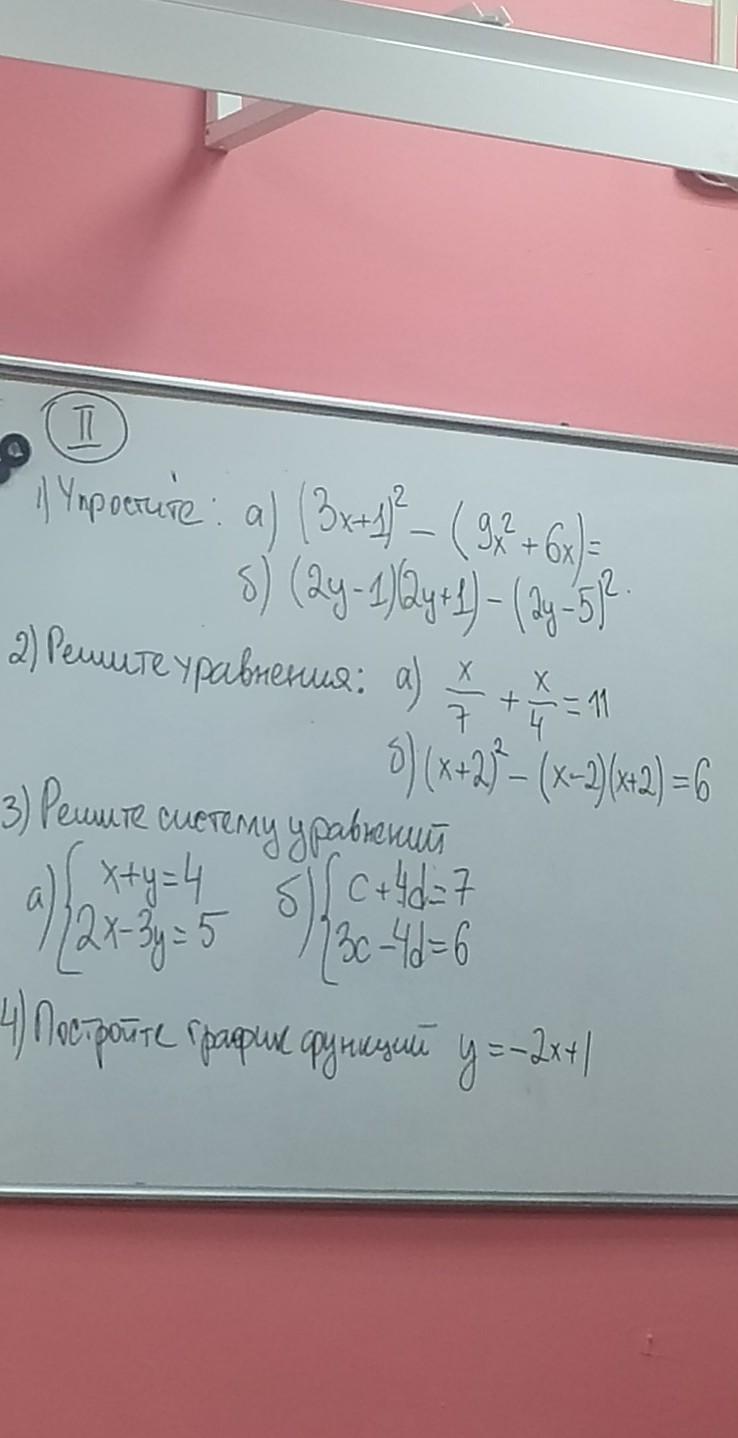 II
1) Упростите: а) (3x+1)² - (9x² + 6x) =
б) (2y-1)(2y+1) - (2y-5)².
2) Решите уравнения: а) x/7 + x/4 = 11
б) (x+2)² - (x-2)(x+2) = 6
3) Решите систему уравнений
а) { x+y=4 б) { c+4d=7
2x-3y=5 3c-4d=6
4) Постройте график функций y=-2x+1